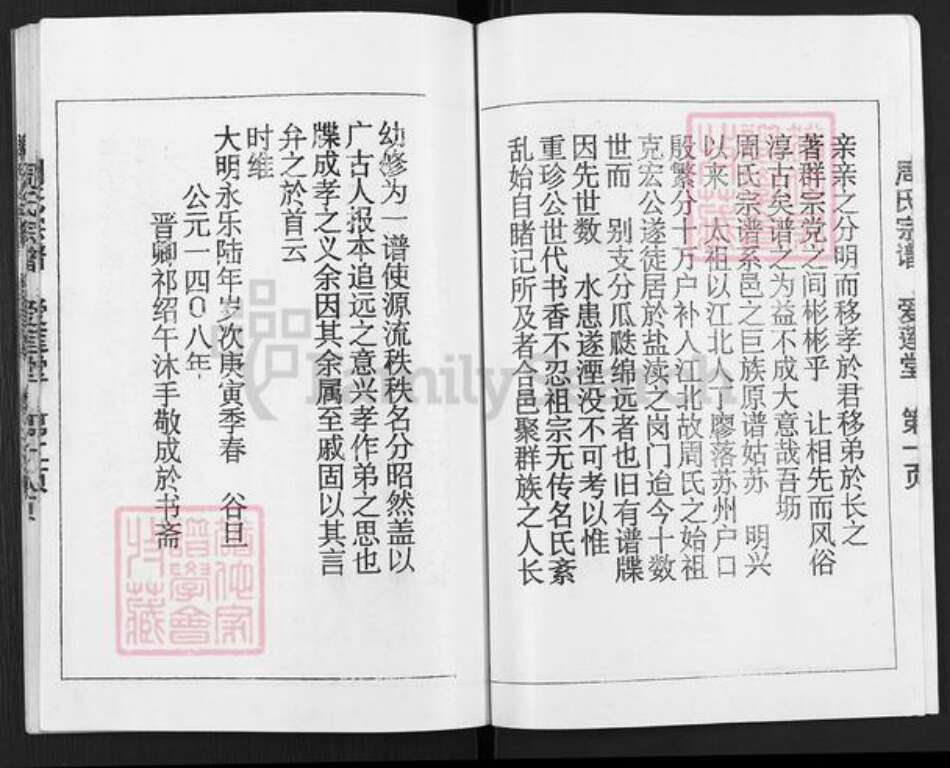 周氏宗谱 爱莲堂 第一页
亲亲之分明而移孝於君移弟於长之
著群宗党之间彬彬乎 让相先而风俗
淳古矣谱之为益不成大意哉吾坜
周氏宗谱系邑之巨族原谱姑苏 明兴
以来 太祖以江北人丁廖落苏州户口
殷繁分十万户补入江北故周氏之始祖
克宏公遂徒居於盐渎之岗门迨今十数
世而 别支分瓜瓞绵远者也旧有谱牒
因先世数 水患遂湮没不可考以惟
重珍公世代书香不忍祖宗无传名氏紊
乱始自睹记所及者合邑聚群族之人长
幼修为一谱使源流秩秩名分昭然盖以
广古人报本追远之意兴孝作弟之思也
牒成孝之义余因其余属至戚固以其言
弁之於首云
时维
大明永乐陆年岁次庚寅季春 谷旦
公元一四〇八年
晋卿祁绍午沐手敬成於书斋
周氏宗谱 爱莲堂
FamilySearch